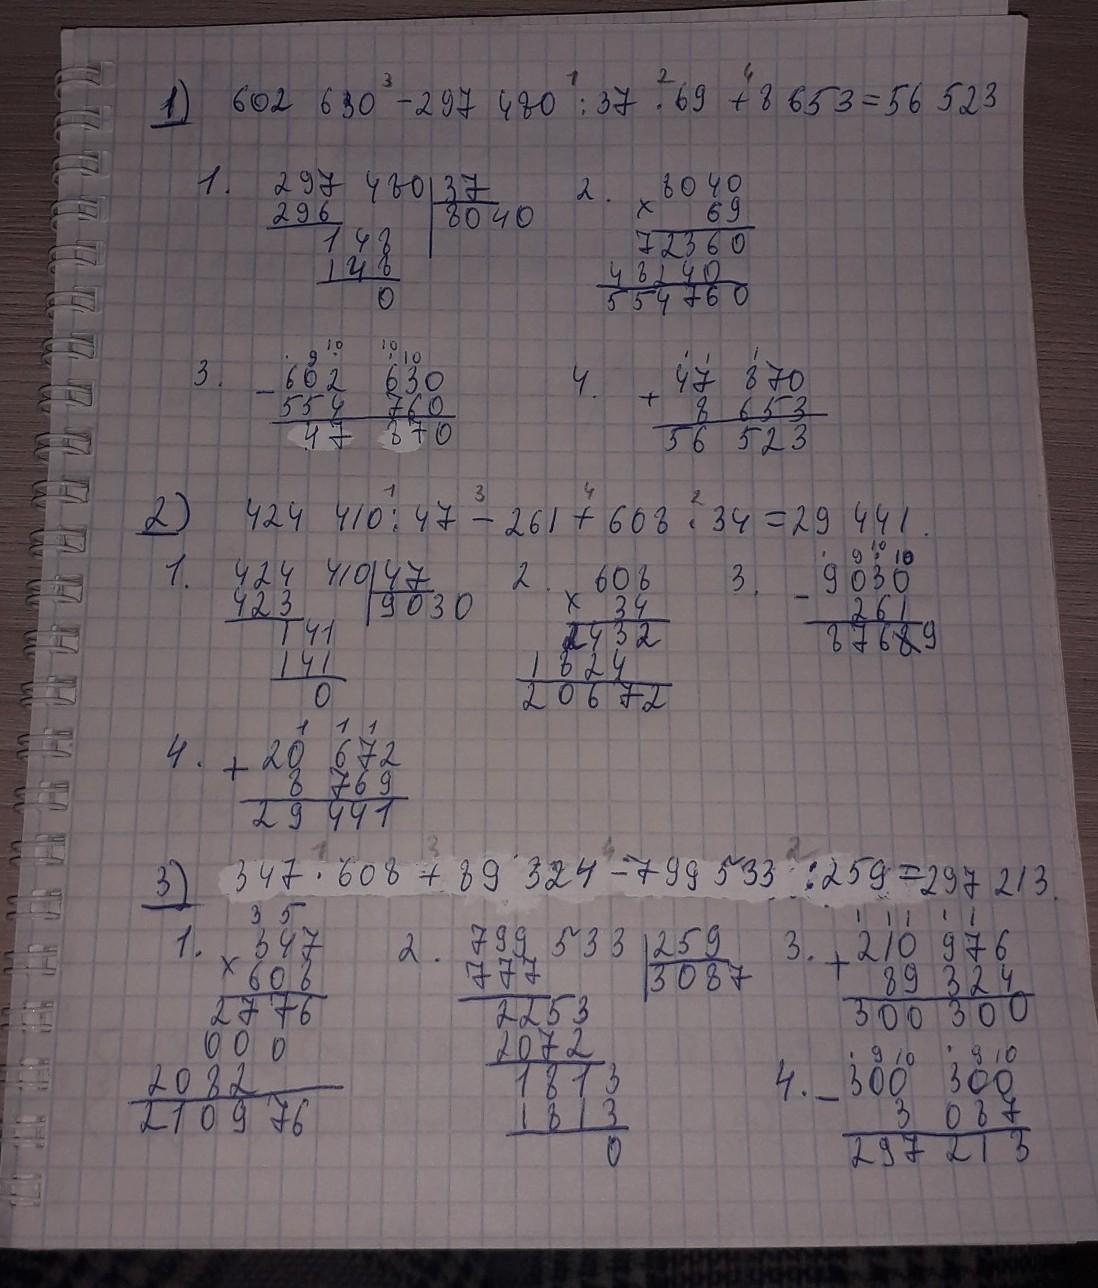 1) 602 630 - 297 480 : 37 · 69 + 8 653 = 56 523
3 1 2 4
1. 297 480 | 37
296 8040
148
148
0
2. 8040
× 69
72360
48240
554760
9 10 10 10
3. - 602 630
554 760
47 870
1 1 1
4. + 47 870
8 653
56 523
2) 424 410 : 47 - 261 + 608 · 34 = 29 441.
1 3 4 2
1. 424 410 | 47
423 9030
141
141
0
2. 608
× 34
2432
1824
20672
9 10 10
3. - 9030
261
8769
1 1 1
4. + 20 672
8 769
29 441
3) 347 · 608 + 89 324 - 799 533 : 259 = 297 213.
1 3 4 2
3 5
1. × 347
608
2776
000
2082
210976
2. 799 533 | 259
777 3087
2253
2072
1813
1813
0
1 1 1 1 1
3. + 210 976
89 324
300 300
9 10 9 10
4. - 300 300
3 087
297 213